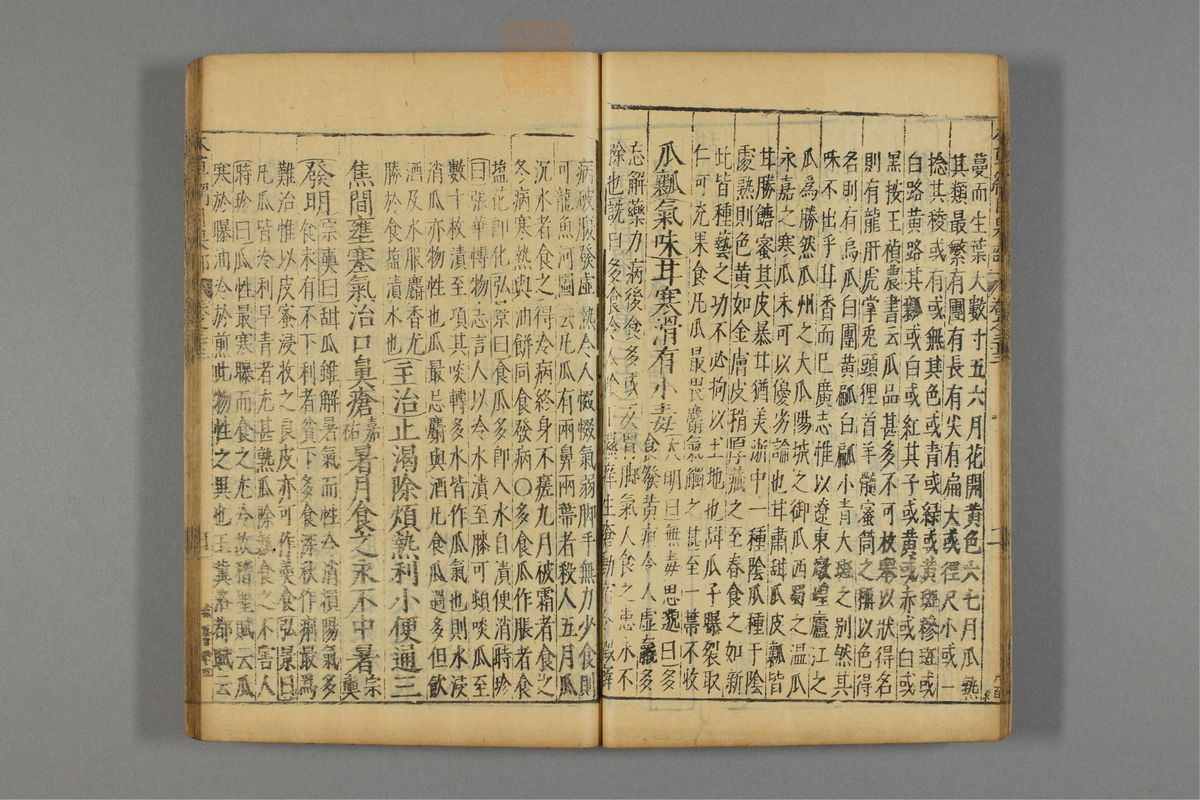 蔓而生葉大數寸五六月花開黃色六七月瓜熟
其類最繁有團有長有尖有扁大或徑尺小或一
捻其稜或有或無其色或青或綠或黃斑糝斑或
白路黃路其瓤或白或紅其子或黃或赤或白或
黑按王禎農書云瓜品甚多不可枚舉以狀得名
則有龍肝虎掌兎頭狸首羊髓蜜筒之稱以色得
名則有烏瓜白團黃㼎白㼎小青大斑之别然其
味不出乎甘香而已廣志惟以遼東燉煌廬江之
瓜為勝然瓜州之大瓜陽城之御瓜西蜀之温瓜
永嘉之寒瓜未可以優劣論也甘肅甜瓜皮瓤皆
甘勝餹蜜其皮暴甘猶美浙中一種陰瓜種于陰
處熟則色黃如金膚皮稍厚藏之至春食之如新
此皆種藝之功不必拘以土地也甜瓜子曝裂取
仁可充果食凡瓜最畏麝氣觸之甚至一蒂不收
瓜瓤氣味甘寒滑有小毒大明曰無毒思邈曰多
食發黃疸令人虛羸多
忘解藥力病後食多或反胃脚氣人食之患永不
除也詵曰多食令人
病破腹發虛熱令人惙惙氣弱脚手無力少食則
可龍魚河圖云凡瓜有兩鼻兩蒂者殺人五月瓜
沉水者食之得冷病終身不瘥九月被霜者食之
冬病寒熱與油餅同食發病○多食瓜作脹者食
塩花卽化弘景曰食瓜多卽入水自漬便消時珍
曰張華博物志言人以冷水漬至膝可頓啖瓜至
數十枚漬至項其啖轉多水皆作瓜氣也則水浸
消瓜亦物性也瓜最忌麝與酒凡食瓜過多但飲
酒及水服麝香尤
勝於食塩漬水也 主治止渴除煩熱利小便通三
焦間壅塞氣治口鼻瘡嘉祐暑月食之永不中暑宗奭
發明宗奭曰甜瓜雖解暑氣而性冷消損陽氣多
食未有不下利者貧下多食深秋作痢最為
難治惟以皮蜜浸收之良皮亦可作羹食弘景曰
凡瓜皆冷利早青者尤甚熟瓜除瓤食之不害人
時珍曰瓜性最寒曝而食之尤冷故稽聖賦云瓜
寒於曝油冷於煎此物性之異也王冀洛都賦云